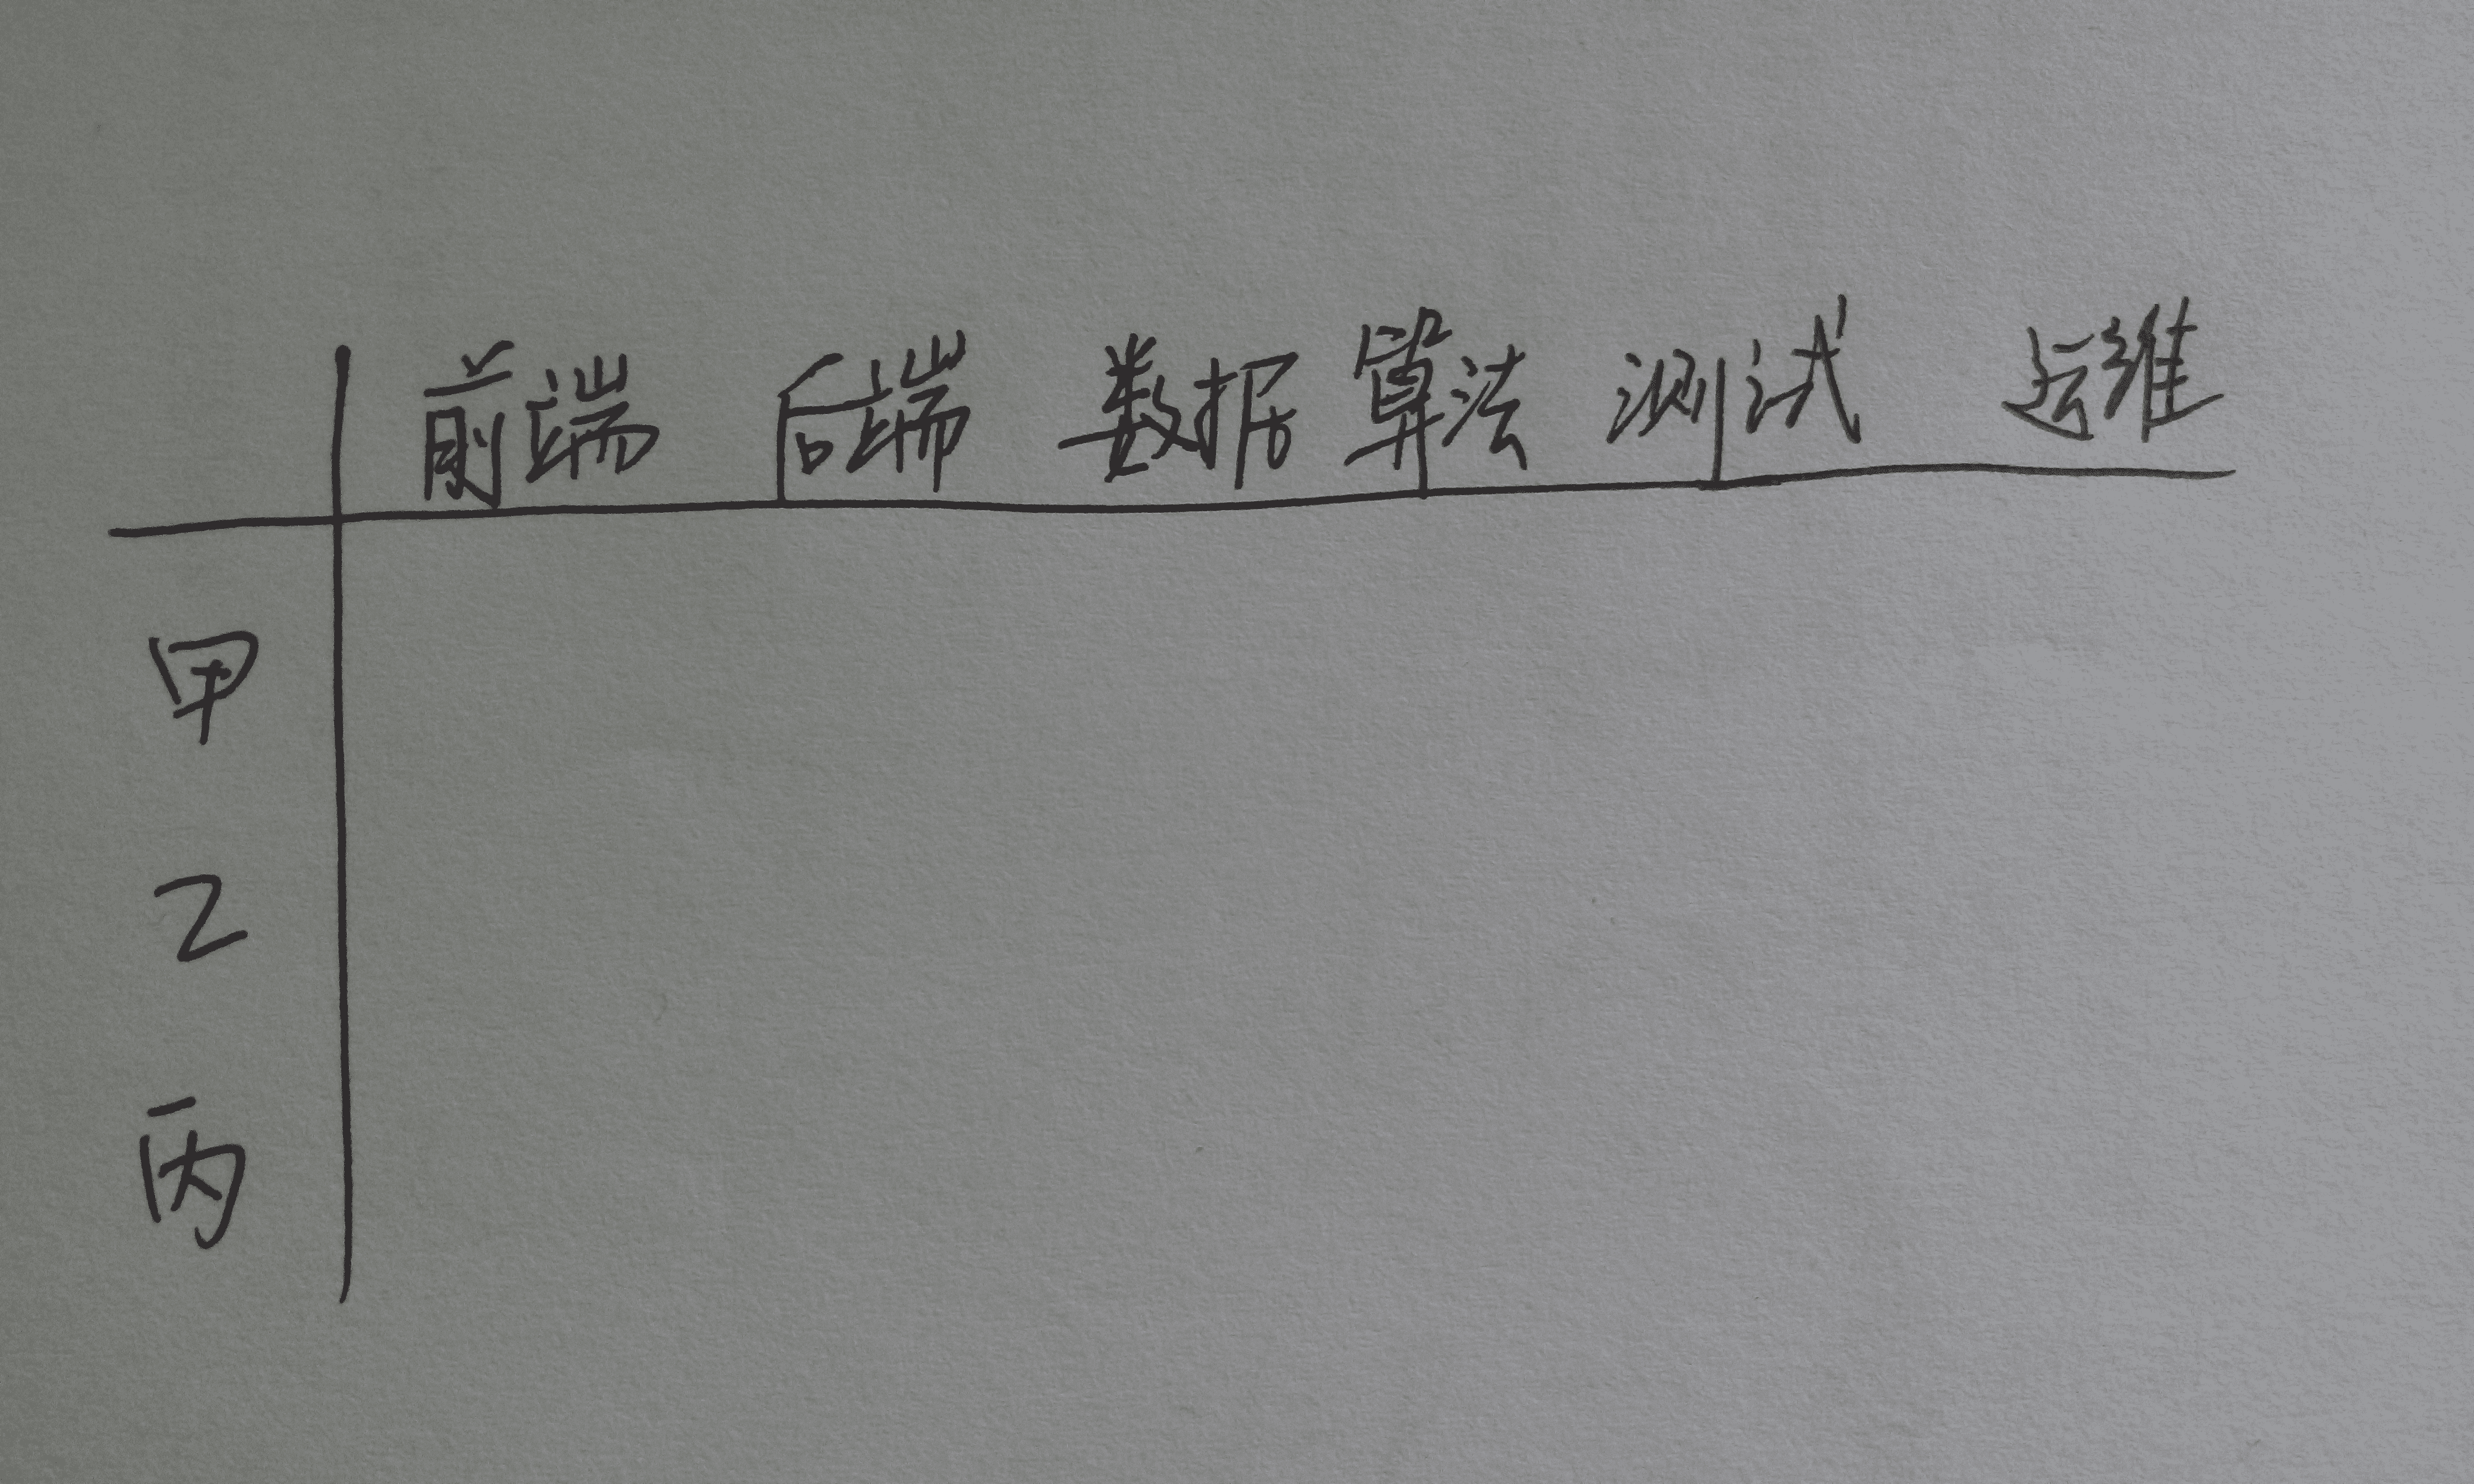 前端 后端 数据 算法 测试 运维
甲
乙
丙